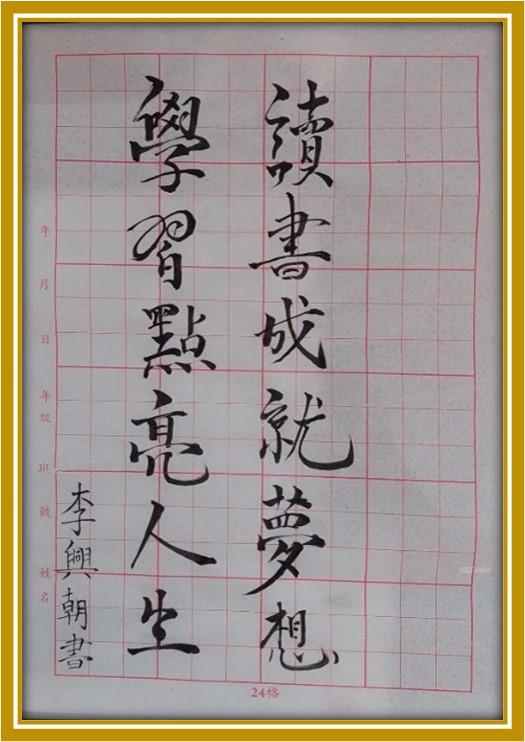 讀書成就夢想
學習點亮人生
李興朝書
年 月 日 年級 班 號 姓名
24格